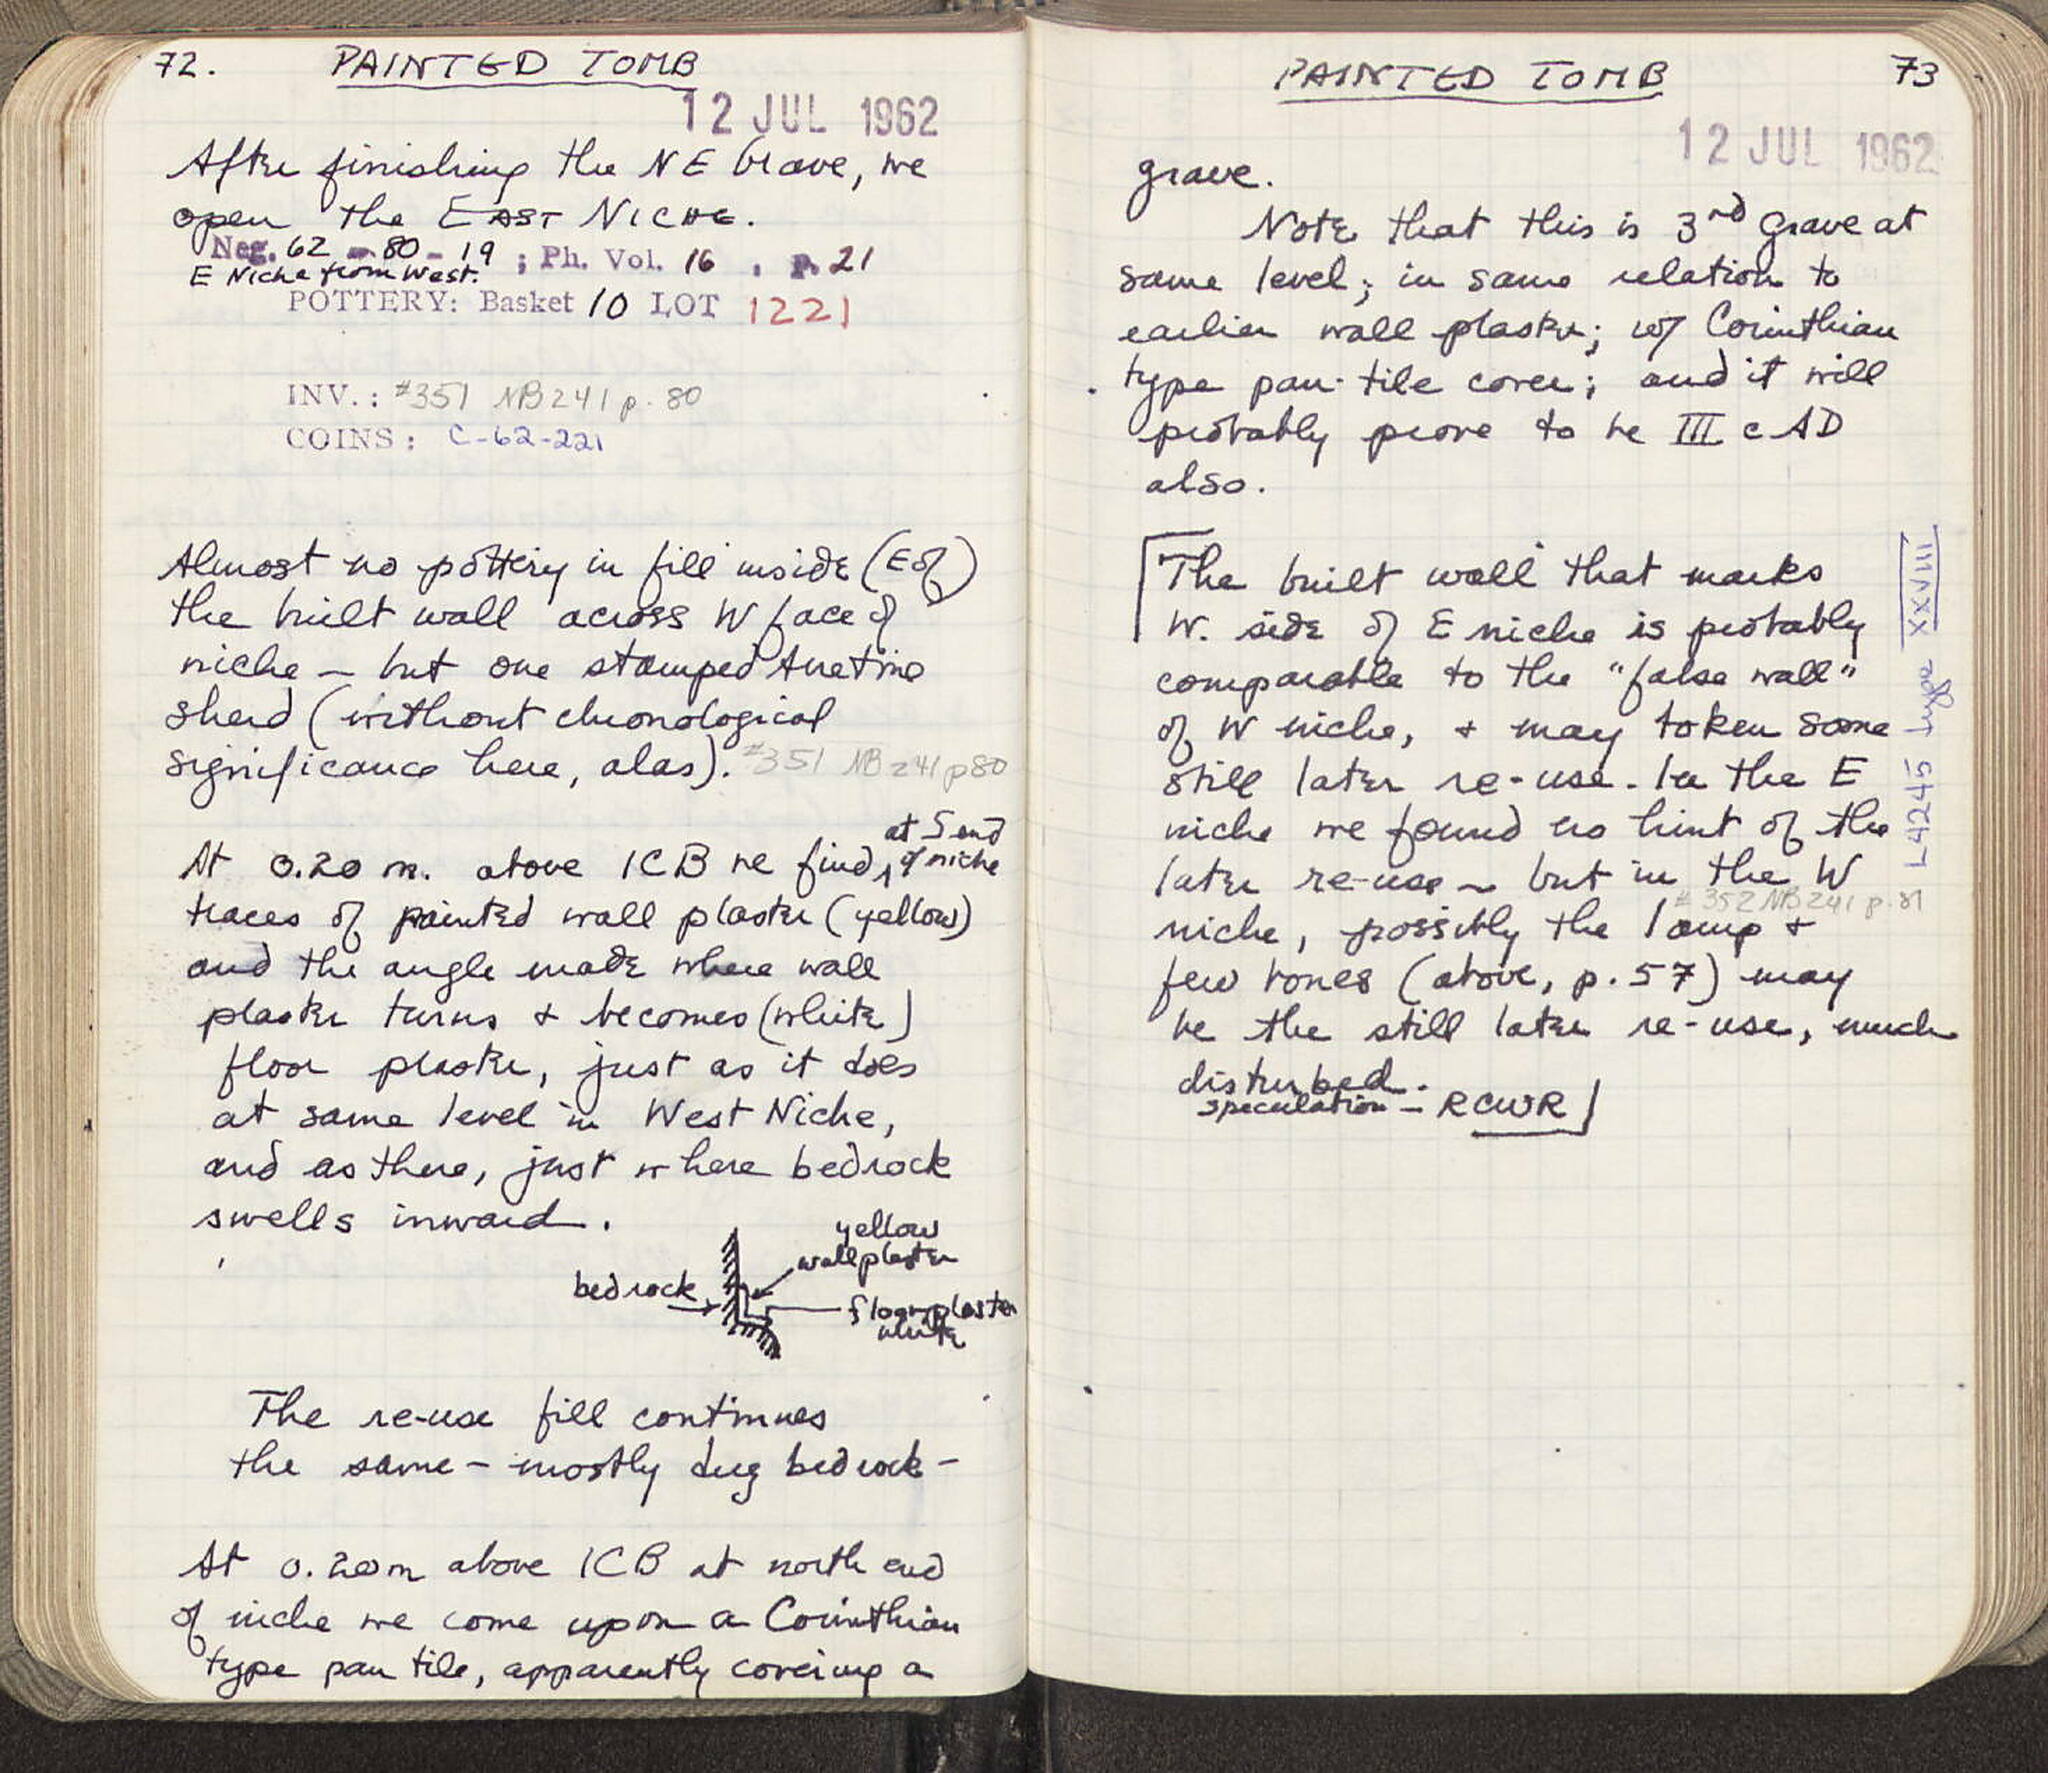 72.
PAINTED TOMB
12 JUL 1962
After finishing the NE Grave, we
open the EAST NICHE.
Neg. 62 - 80 - 19 ; Ph. Vol. 16 , p. 21
E Niche from West.
POTTERY: Basket 10 LOT 1221
INV.: #351 NB 241 p. 80
COINS: C-62-221
Almost no pottery in fill inside (E of)
the built wall across W face of
niche – but one stamped Arretine
sherd (without chronological
significance here, alas). #351 NB 241 p 80
At 0.20 m. above ICB we find, at S end of niche
traces of painted wall plaster (yellow)
and the angle made where wall
plaster turns & becomes (white)
floor plaster, just as it does
at same level in West Niche,
and as there, just where bedrock
swells inward.
yellow
wall plaster
bedrock
floor plaster
white
The re-use fill continues
the same – mostly dug bedrock –
At 0.20m above ICB at north end
of niche we come upon a Corinthian
type pan tile, apparently covering a
PAINTED TOMB
73
12 JUL 1962
grave.
Note that this is 3rd grave at
same level; in same relation to
earlier wall plaster; w/ Corinthian
type pan-tile cover; and it will
probably prove to be III c AD
also.
[The built wall that marks
W. side of E niche is probably
comparable to the "false wall"
of W niche, & may token some
still later re-use. In the E
niche we found no hint of the
later re-use – but in the W
#352 NB 241 p. 81
niche, possibly the lamp &
few bones (above, p. 57) may
be the still later re-use, much
disturbed.
speculation – RCWR]
L 4245 Type XXVIII